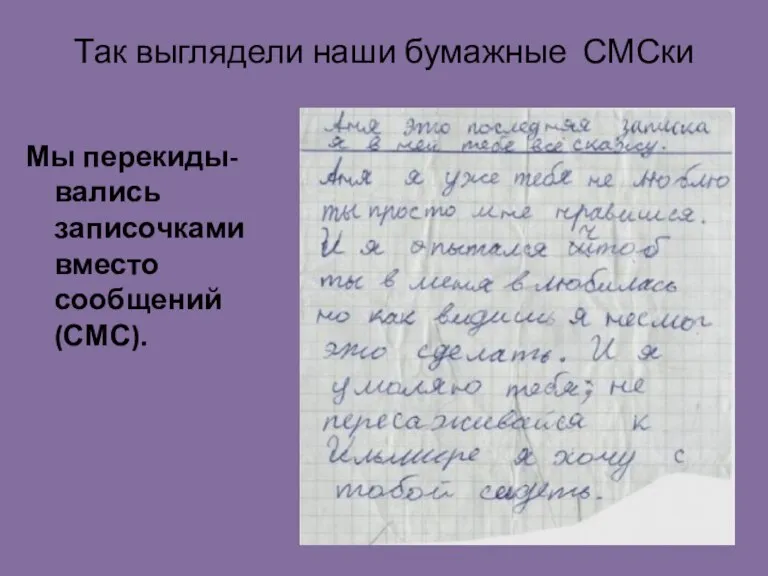 Так выглядели наши бумажные СМСки
Мы перекиды-
вались
записочками
вместо
сообщений
(СМС).
Аня это последняя записка
я в ней тебе всё скажу.
Аня я уже тебя не люблю
ты просто мне нравишся.
И я опытался чтоб
ты в меня влюбилась
но как видишь я несмог
это сделать. И я
умоляю тебя, не
пересаживайся к
Ильмире я хочу с
тобой сидеть.